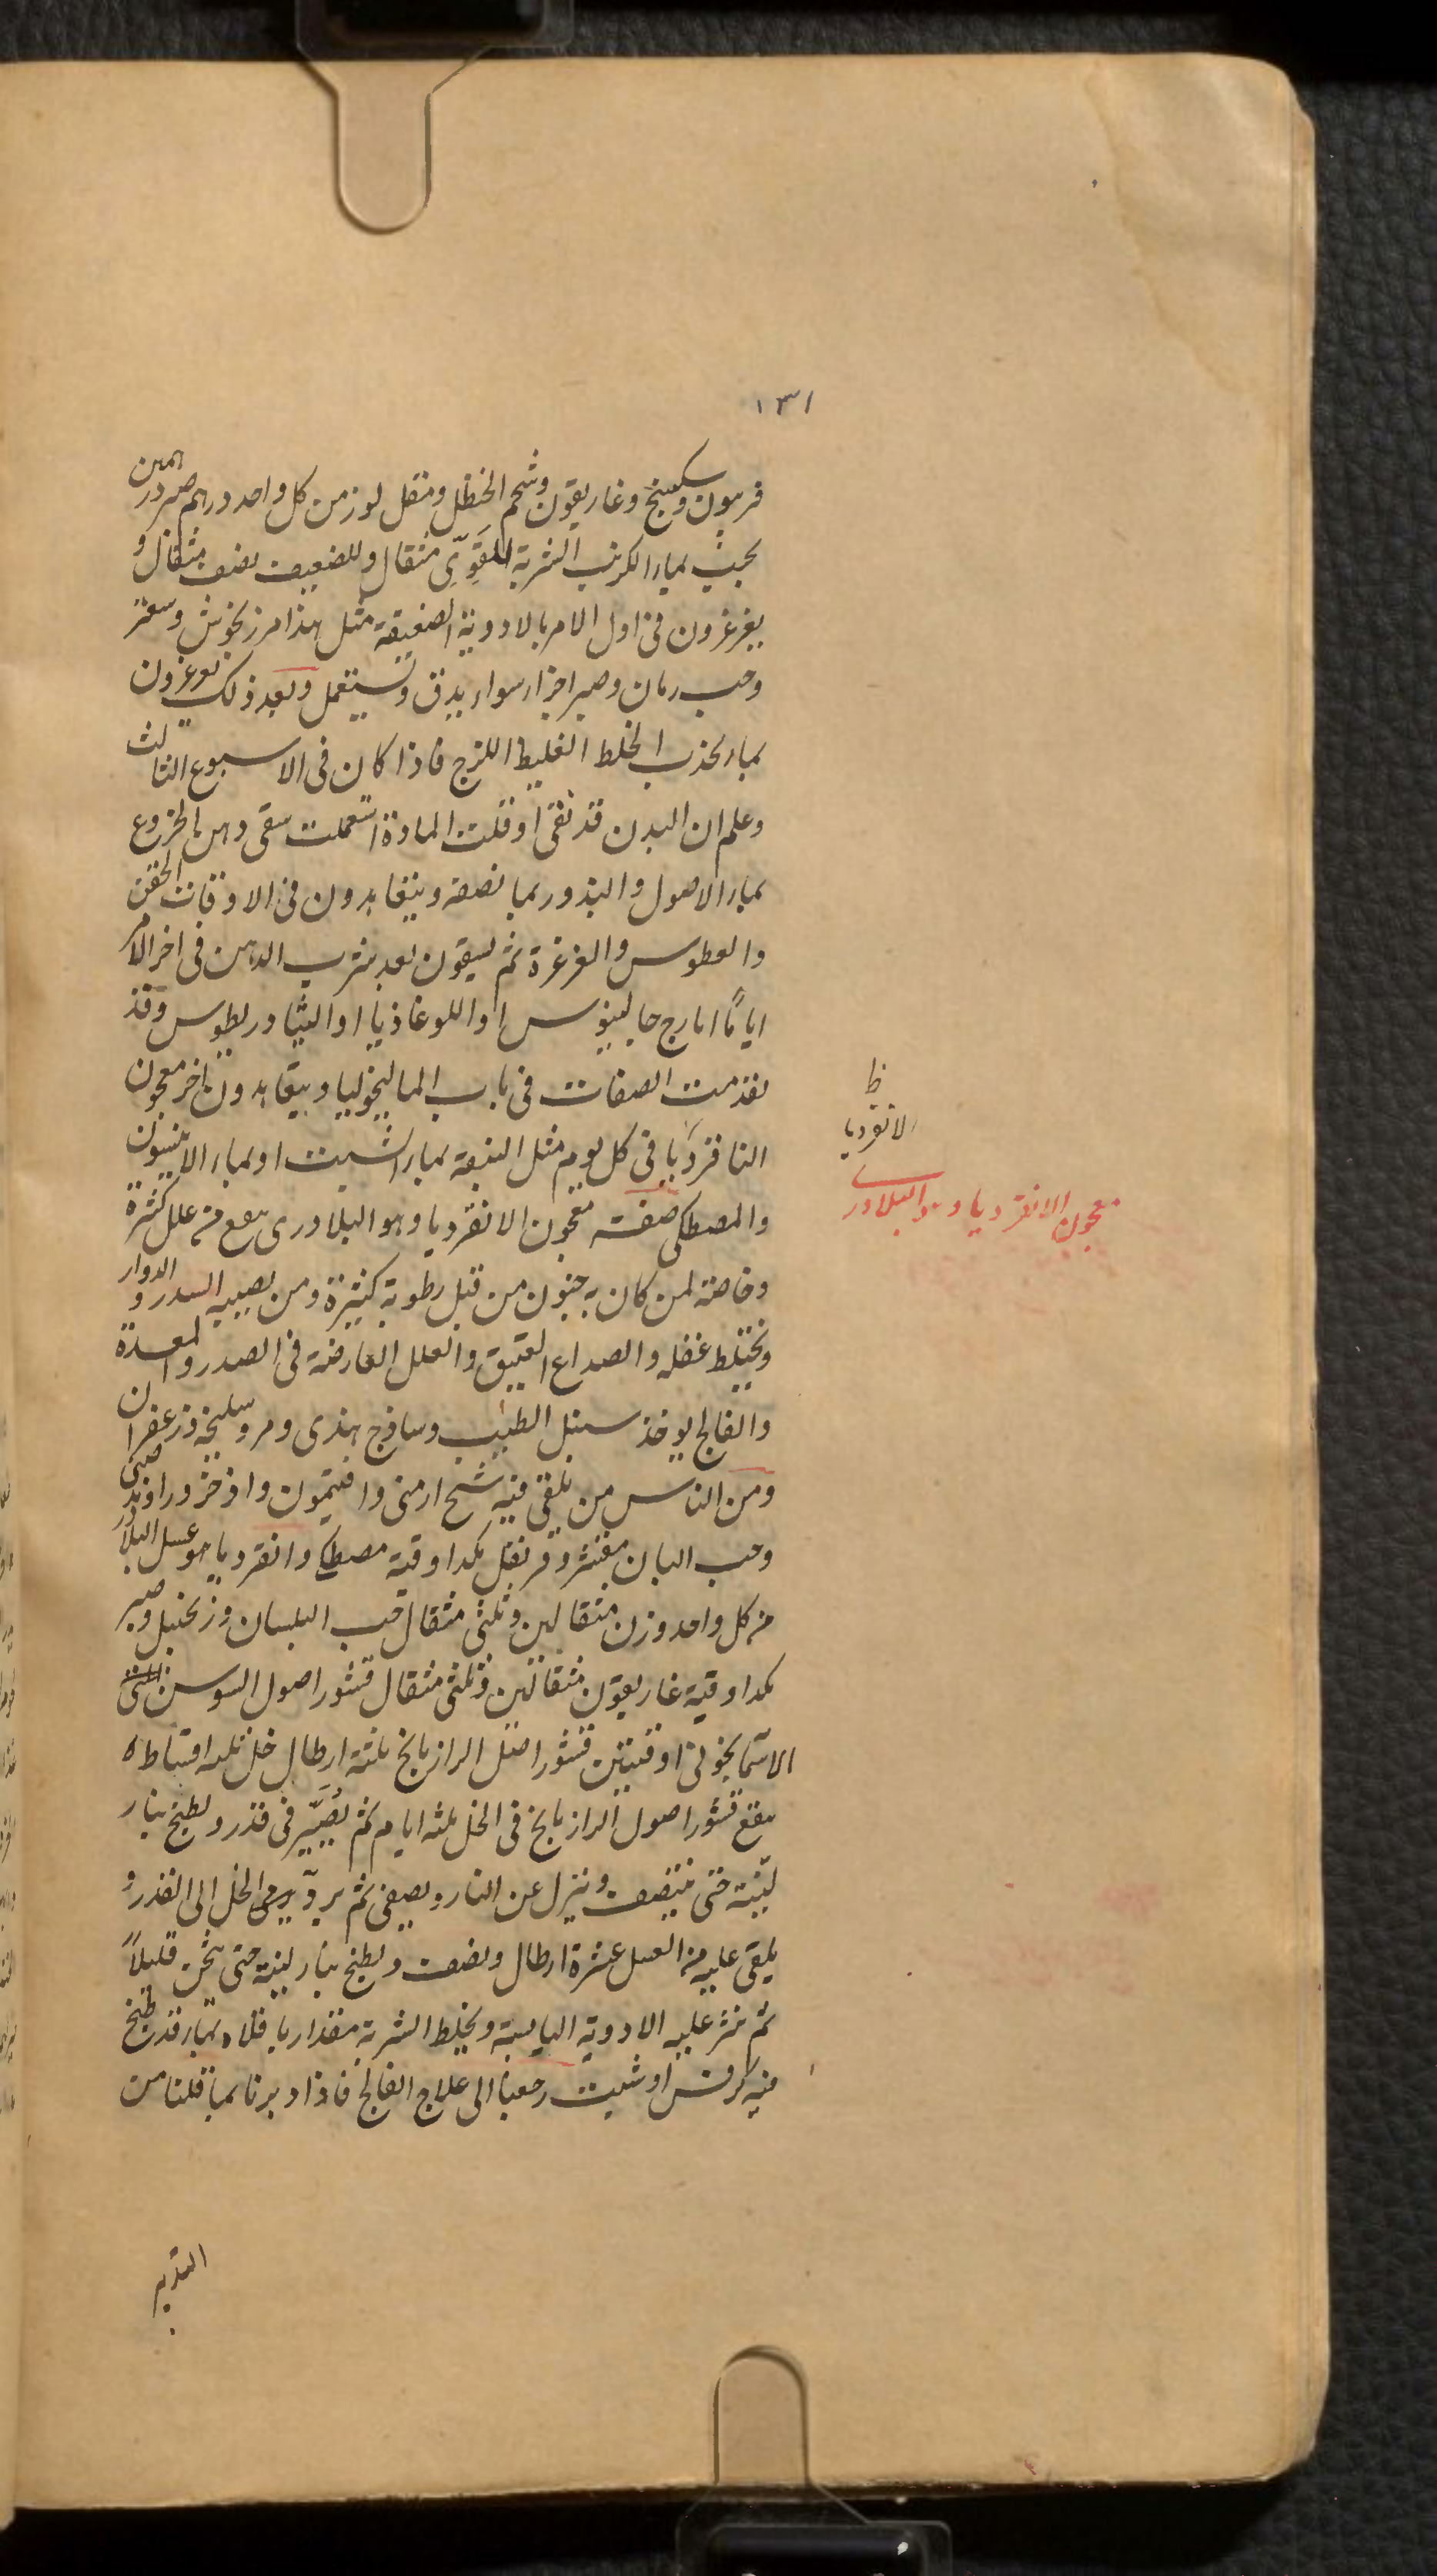 ١٣١
فربيون وسكبينج وغاريقون وشحم الحنظل ومقل لوز من كل واحد درهم صبر درهمين
يحبب بماء الكرنب الشربة للقوىّ مثقال وللضعيف نصف مثقال و
يغرغرون فى اول الامر بالادوية الضعيفة مثل هذا مرزنجوش وسعتر
وحب رمان وصبر اجزاء سواء يدق ويستعمل وبعد ذلك يغرغرون
بما يجذب الخلط الغليظ اللزج فاذا كان فى الاسبوع الثالث
وعلم ان البدن قد نقى او قلت المادة استعملت سقى دهن الخروع
بماء الاصول والبذور بما نصفه ويتعاهدون فى الاوقات الحقن
والعطوس والغرغرة ثم يسقون بعد شرب الدهن فى اخر الامر
اياماً ايارج جالينوس او اللوغاذيا او الثيادريطوس وقد
تقدمت الصفات فى باب الماليخوليا ويتعاهدون باخر معجون
النافرديا فى كل يوم مثل النبقة بماء الشبت او بماء الانيسون
والمصطكى صفت معجون الانقرديا وهو البلادرى ينفع من علل كثيرة
وخاصة لمن كان به جنون من قبل رطوبة كثيرة ومن يصيبه السدر والدوار
ويختلط عقله والصداع العتيق والعلل العارضة فى الصدر والمعدة
والفالج يوخذ سنبل الطيب وساذج هندى ومر وسليخة وزعفران
ومن الناس من يلقى فيه شيح ارمنى وافتيمون واذخر وراوند صينى
وحب البان مقشر وقرنفل يكد اوقية مصطكى وانقرديا هو عسل البلادر
من كل واحد وزن مثقالين وثلثى مثقال حب البلسان وزنجبيل وصبر
يكد اوقية غاريقون مثقالين وثلثى مثقال قشور اصول السوسن
الاسمانجونى اوقيتين قشور اصل الرازيانج ثلثة ارطال خل ثلثه اقساط
ينقع قشور اصول الرازيانج فى الخل ثلثه ايام ثم يُصَيّر فى قدر ويطبخ بنار
لينة حتى ينتصف وينزل عن النار ويصفى ثم يردّ يرمى الخل الى القدر و
يلقى عليه من العسل عشرة ارطال ونصف ويطبخ بنار لينة حتى يثخن قليلاً
ثم ينثر عليه الادوية اليابسة ويخلط الشربة مقدار باقلاه بماء قد طبخ
فيه كرفس او شبت رجعنا الى علاج الفالج فاذا دبرنا بما قلنا من
التدبير
ظ
الانقرديا
معجون الانقرديا وهو البلادرى